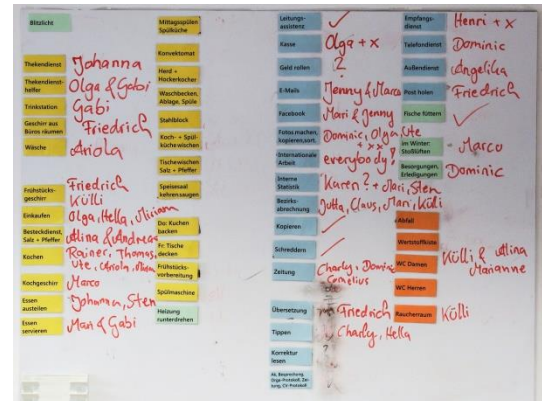 Blitzlicht
Thekendienst Johanna
Thekendienst-
helfer Olga & Gabi
Trinkstation Gabi
Geschirr aus
Büros räumen Friedrich
Wäsche Ariola
Frühstücks-
geschirr Friedrich
Külli
Einkaufen Olga, Hella, Miriam
Besteckdienst,
Salz + Pfeffer Alina & Andreas
Kochen Rainer, Thomas,
Ute, Ariola,
Kochgeschirr Marco
Essen
austeilen Johanna, Sten
Essen
servieren Mari & Gabi
Mittagsspülen
Spülküche
Konvektomat
Herd +
Hockerkocher
Waschbecken,
Ablage, Spüle
Stahlblock
Koch- + Spül-
küche wischen
Tische wischen
Salz + Pfeffer
Speisesaal
kehren saugen
Do: Kuchen
backen
Fr: Tische
decken
Frühstücks-
vorbereitung
Spülmaschine
Heizung
runterdrehen
Leitungs-
assistenz ✓
Kasse Olga + x
Geld rollen ?
E-Mails Jenny & Marco
Facebook Mari & Jenny
Fotos machen,
kopieren, sort. Dominic, Olga, Ute
+ x x
Internationale
Arbeit everybody?
Interne
Statistik Karen? + Mari, Sten
Bezirks-
abrechnung Jutta, Claus, Mari, Külli
Kopieren ✓
Schreddern ✓
Zeitung Charly, Dominic
Cornelius
Übersetzung Friedrich
Tippen Charly, Hella
Korrektur
lesen ?
Empfangs-
dienst Henri + x
Telefondienst Dominic
Außendienst Angelika
Post holen Friedrich
Fische füttern ✓
im Winter:
Stoßlüften - Marco
Besorgungen,
Erledigungen Dominic
Abfall
Wertstoffkiste
WC Damen Külli & Alina
Marianne
WC Herren
Raucherraum Külli